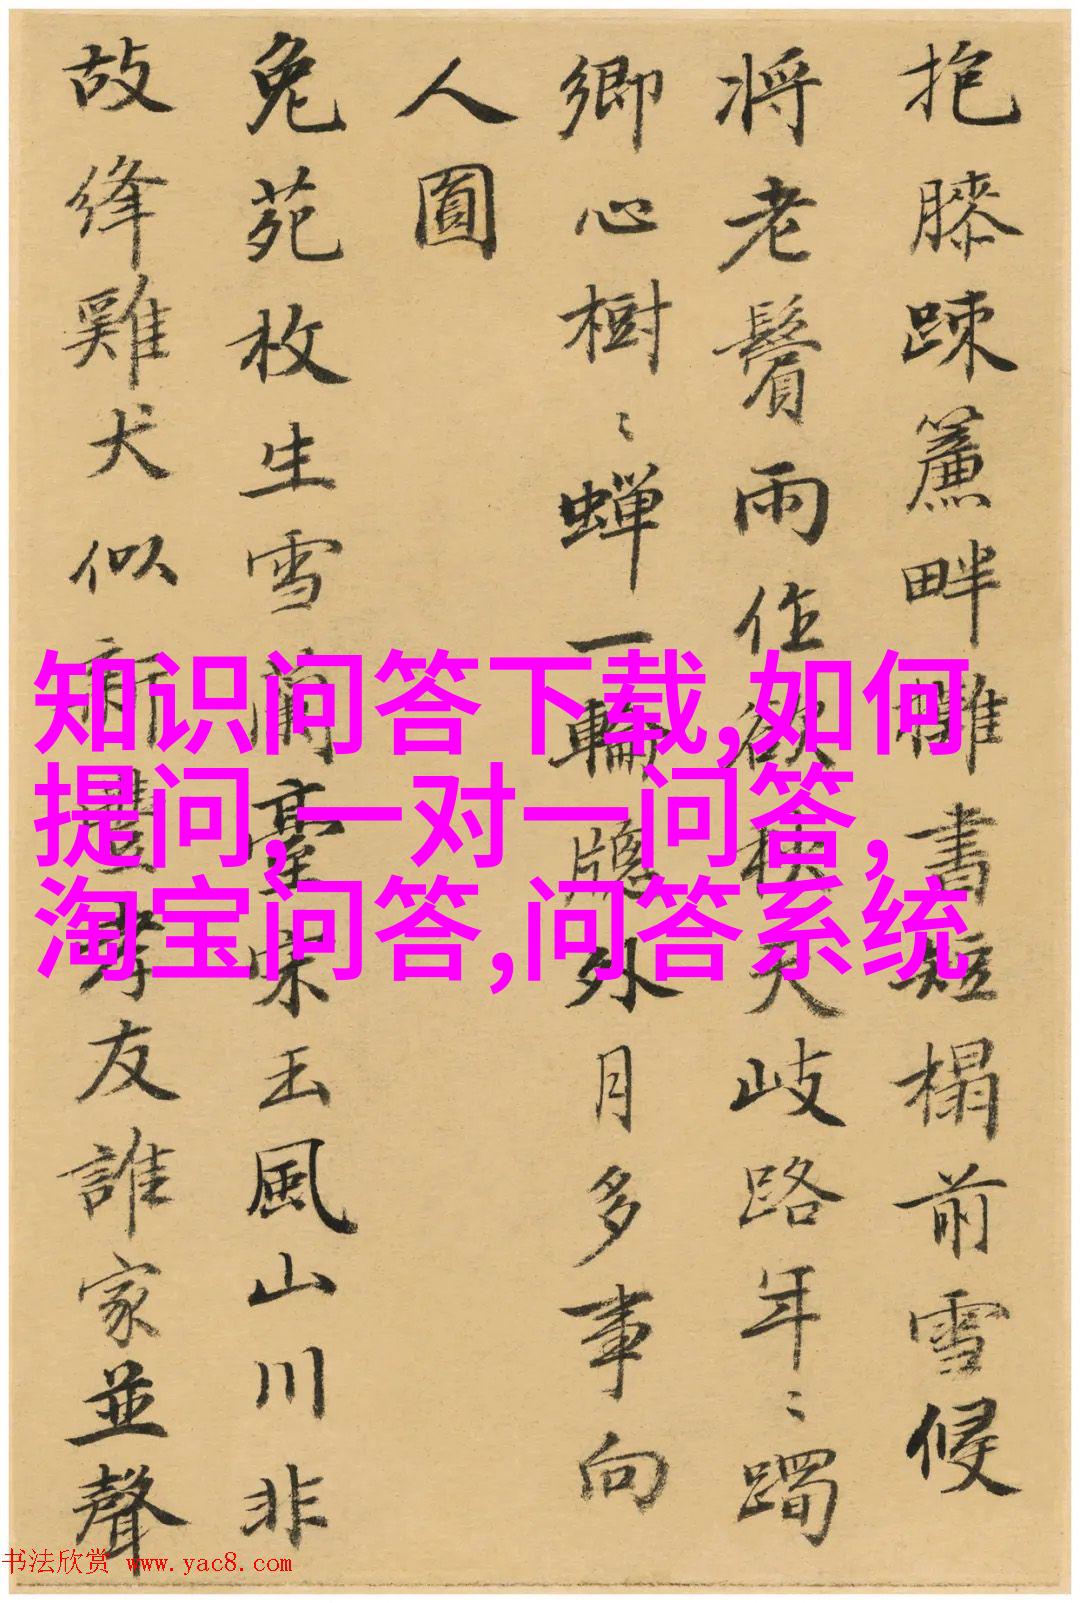 抱膝踈簾畔攤書短榻前雪侵
将老鬢雨作欲秋天岐路年〻躅
鄉心樹〻蟬一輪牕外月多事向
人圓
兔苑枚生雪蘭臺宋玉風山川非
故絳雞犬似新豐孝友誰家並聲
知识问答下载,如何
提问,一对一问答,
淘宝问答,问答系统
书法欣赏 www.yac8.com